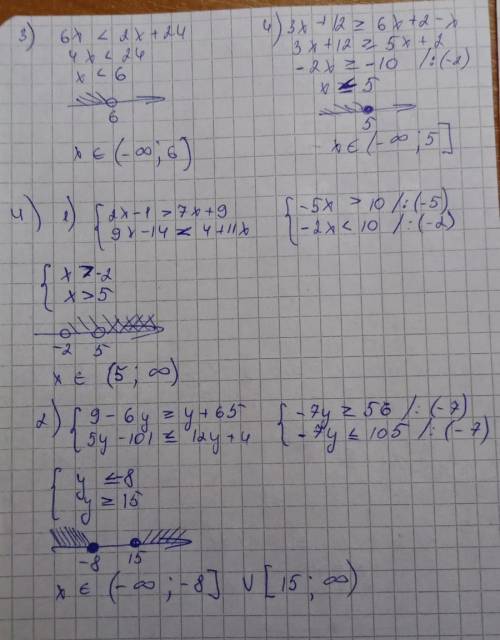 3) 6x < 2x + 24
4x < 24
x < 6
6
x ∈ (-∞; 6]
4) 3x + 12 ≥ 6x + 2 - x
3x + 12 ≥ 5x + 2
-2x ≥ -10 /:(-2)
x ≤ 5
5
x ∈ (-∞; 5]
4) 1) { 2x - 1 > 7x + 9 { -5x > 10 /:(-5)
9x - 14 < 4 + 11x -2x < 10 /:(-2)
{ x > -2
x > 5
-2 5
x ∈ (5; ∞)
2) { 9 - 6y ≥ y + 65 { -7y ≥ 56 /:(-7)
5y - 101 ≤ 12y + 4 -7y ≤ 105 /:(-7)
{ y ≤ -8
y ≥ 15
-8 15
x ∈ (-∞; -8] ∪ [15; ∞)